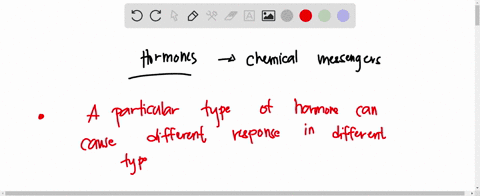 Hormones → chemical messengers
• A particular type of hormone can
cause different response in different
type